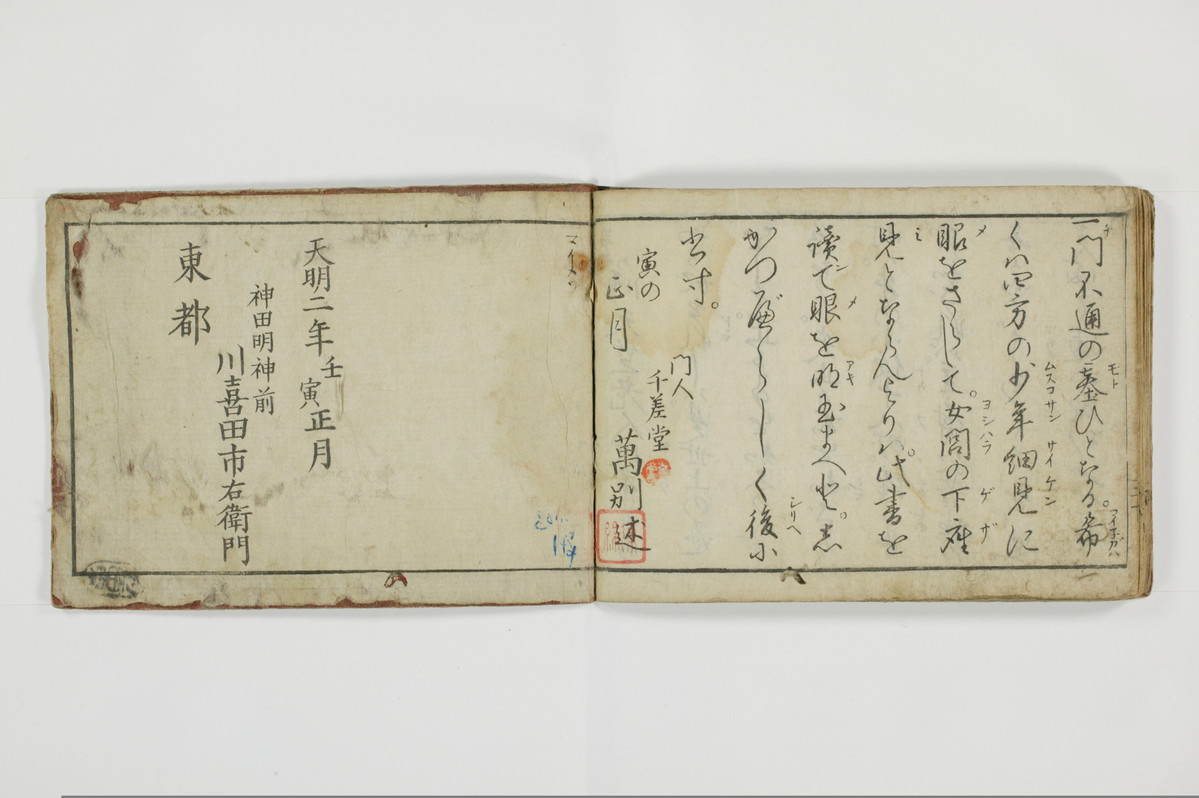 一門不通の基ひとなる。希
くハ四方の少年細見に
眼をさらして。女閭の下座
見とならんよりハ。此書を
読で眼を明玉まへと。志
かつべらしく後に
書す。
寅の
正月
門人
千差堂
萬別述
天明二年壬寅正月
神田明神前
東都
川喜田市右衛門